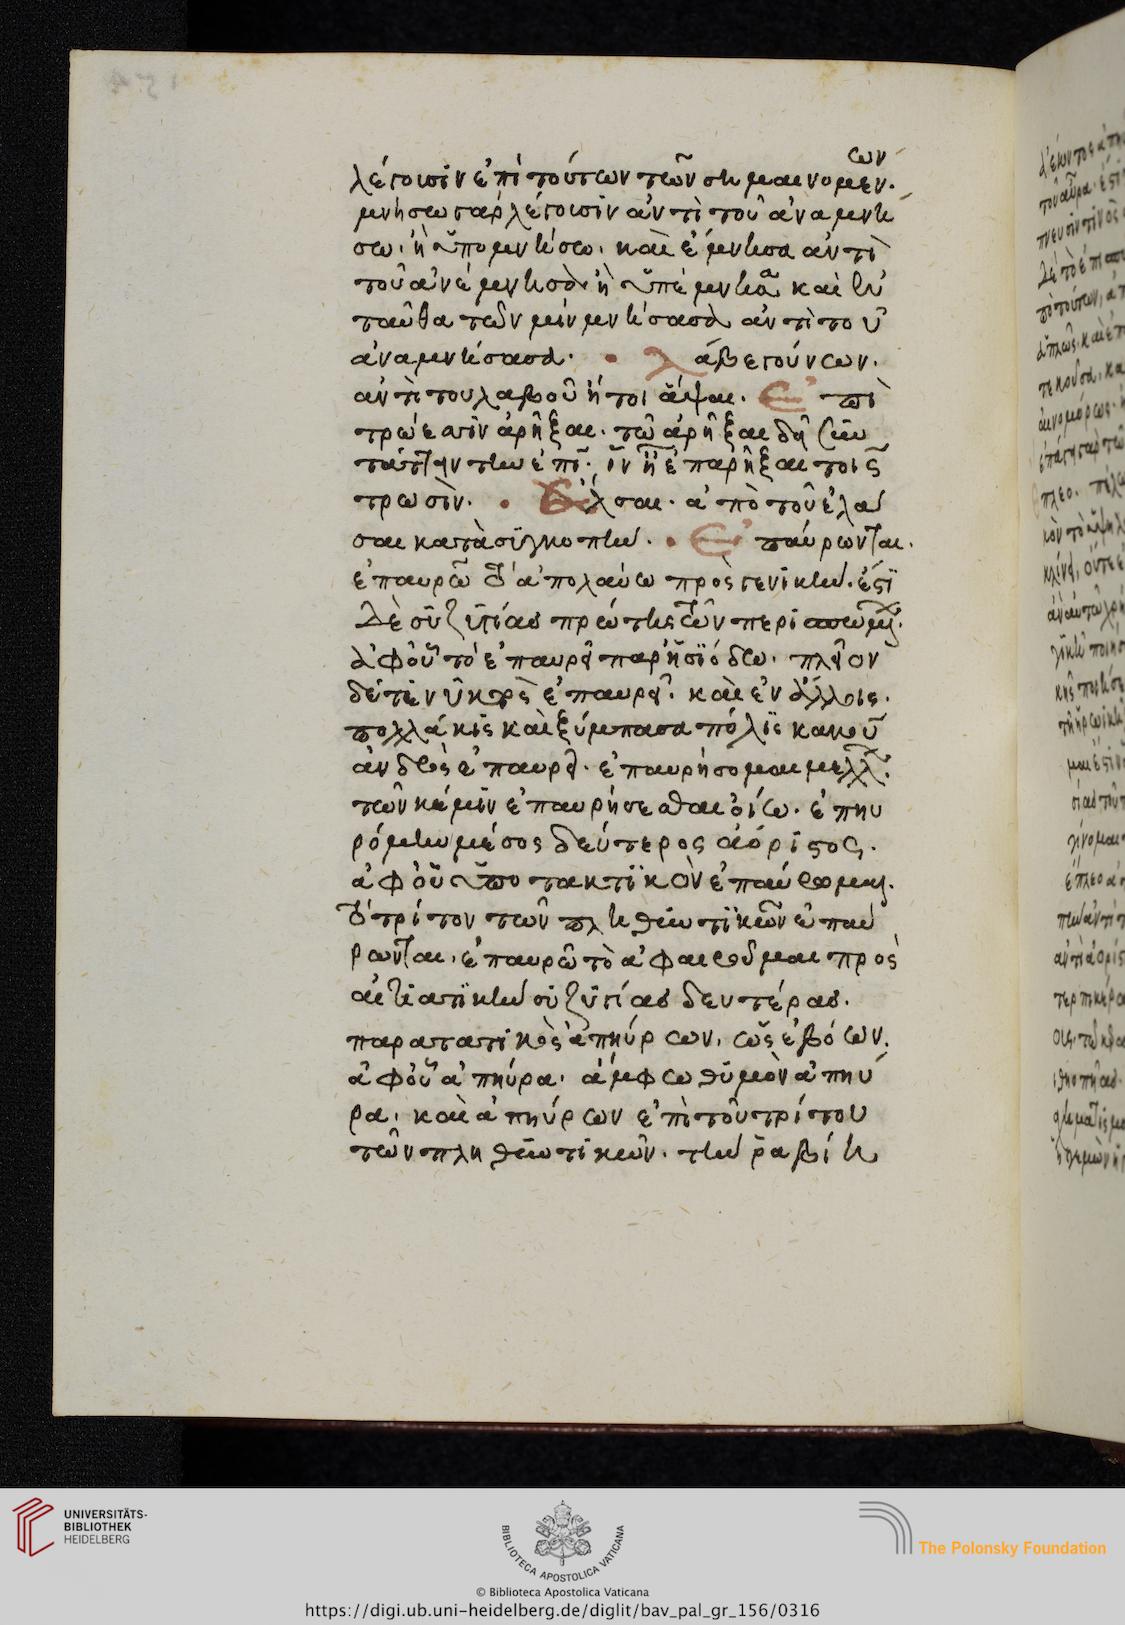 λέγουσιν ἐπὶ τούτων τῶν σημαινομένων.
μνήσω γὰρ λέγουσιν ἀντὶ τοῦ ἀναμνή
σω. ἢ ὑπομνήσω. καὶ ἔμνησα ἀντὶ
τοῦ ἀνέμνησα ἢ ὑπέμνησα καὶ ἐν
ταῦθα τῶν μιν μνήσασα ἀντὶ τοῦ
ἀναμνήσασα. λάβε γούνων.
ἀντὶ τοῦ λαβοῦ ἤτοι ἅψαι. Ἐπὶ
τρώεσσιν ἀρῆξαι. τῶ ἀρῆξαι δὴ
τὴν ἐπί. ἵν ἦ ἐπαρῆξαι τοῖς
τρωσίν. ἔλσαι. ἀπὸ τοῦ ἐλά
σαι κατὰ συγκοπήν. Ἐπαύρωνται.
ἐπαυρῶ τὸ ἀπολαύω πρὸς γενικήν. ἐστὶ
δὲ συζυγίας πρώτης τῶν περισπωμένων.
ἀφ' οὗ τὸ ἐπαυρεῖ παρ' ἡσιόδω. πλεῖον
δέ τε νυκτὸς ἐπαυρεῖ. καὶ ἐν ἄλλοις.
πολλάκις καὶ ξύμπασα πόλις κακοῦ
ἀνδρὸς ἐπαυρεῖ. ἐπαυρήσομαι μέλλων.
τῶν κέ μιν ἐπαυρήσεσθαι ὀΐω. ἐπηυ
ρόμην μέσος δεύτερος ἀόριστος.
ἀφ' οὗ ὑποτακτικὸν ἐπαύρωμαι.
τὸ τρίτον τῶν πληθυντικῶν ἐπαύ
ρωνται. ἐπαυρῶ τὸ ἀφαιροῦμαι πρὸς
αἰτιατικὴν συζυγίας δευτέρας.
παρατατικὸς ἀπηύρων. ὡς ἐβόων.
ἀφ' οὗ ἀπηύρα. ἄμφω θυμὸν ἀπηύ
ρα. καὶ ἀπηύρων ἐπὶ τοῦ τρίτου
τῶν πληθυντικῶν. τὴν ῥα βίη
UNIVERSITÄTS-
BIBLIOTHEK
HEIDELBERG
BIBLIOTECA APOSTOLICA VATICANA
The Polonsky Foundation
© Biblioteca Apostolica Vaticana
https://digi.ub.uni-heidelberg.de/diglit/bav_pal_gr_156/0316